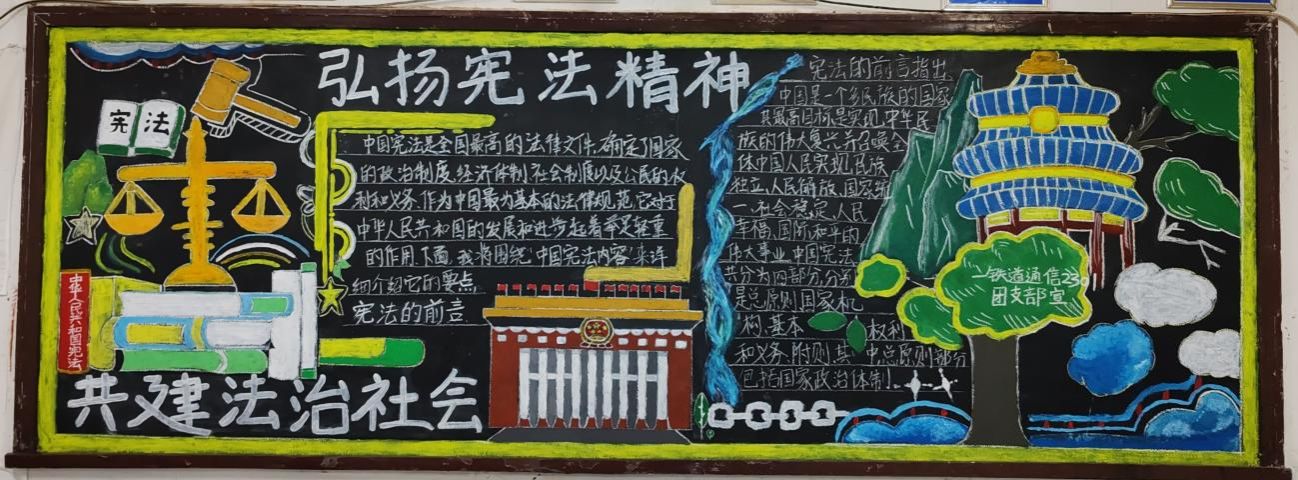 弘扬宪法精神
宪法
中国宪法是全国最高的法律文件,确定了国家
的政治制度、经济体制、社会制度以及公民的权
利和义务。作为中国最为基本的法律规范,它对于
中华人民共和国的发展和进步起着举足轻重
的作用。下面,我将围绕中国宪法内容来详
细介绍它的要点
宪法的前言
中华人民共和国宪法
共建法治社会
宪法的前言指出
中国是一个多民族的国家
其最高目标是实现中华民
族的伟大复兴并召唤全
体中国人民实现民族
独立、人民解放、国家统
一、社会稳定、人民
幸福、国际和平的
伟大事业。中国宪法
共分为四部分,分别
是总原则、国家机
构、基本权利
和义务、附则。其中总原则部分
包括国家政治体制。
铁道通信230
团支部宣